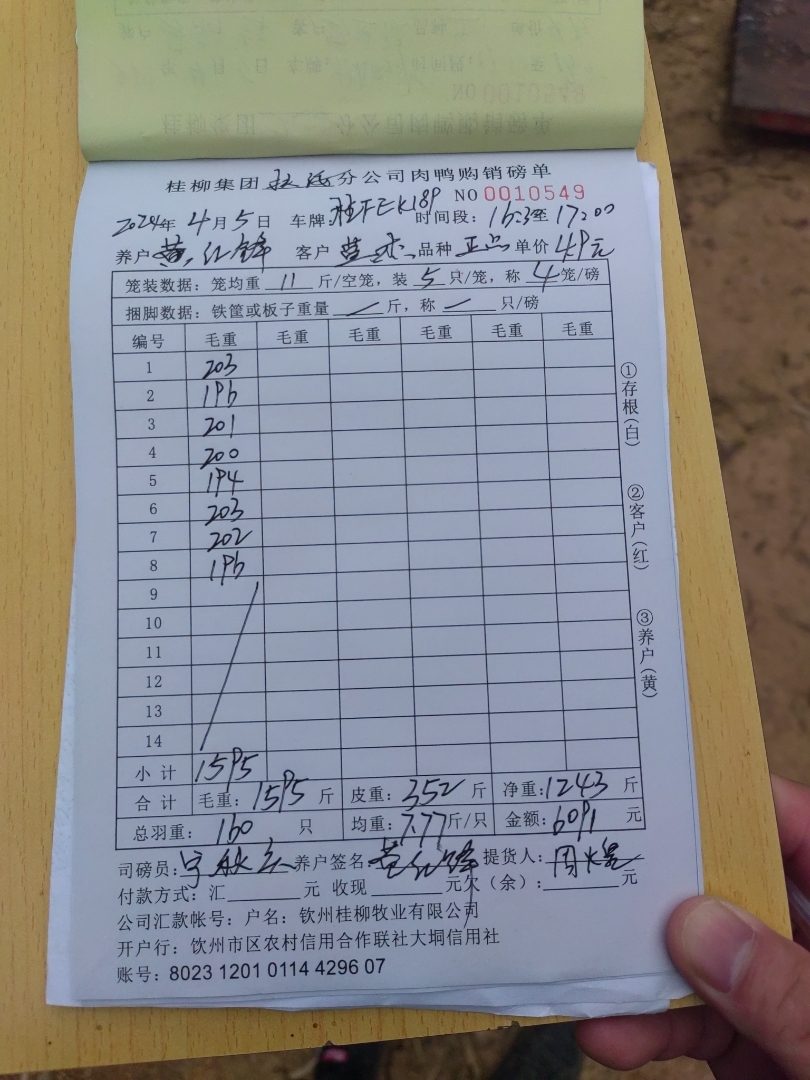 NO 0010548
桂柳集团 分公司肉鸭购销磅单
NO 0010549
2024年 4月5日 车牌: 桂FEK189 时间段: 16:3至17:00
养户 黄红锋 客户 品种 正品 单价 4.9元
笼装数据: 笼均重 11 斤/空笼, 装 5 只/笼, 称 4 笼/磅
捆脚数据: 铁筐或板子重量 / 斤, 称 / 只/磅
编号 毛重 毛重 毛重 毛重 毛重 毛重
1 203
2 196
3 201
4 200
5 194
6 203
7 202
8 196
9
10
11
12
13
14
小计 1595
合计 毛重: 1595 斤 皮重: 352 斤 净重: 1243 斤
总羽重: 160 只 均重: 7.77斤/只 金额: 6091 元
司磅员: 养户签名: 黄红锋 提货人:
付款方式: 汇 元 收现 元欠(余): 元
公司汇款帐号: 户名: 钦州桂柳牧业有限公司
开户行: 钦州市区农村信用合作联社大垌信用社
账号: 8023 1201 0114 4296 07
①存根(白)
②客户(红)
③养户(黄)